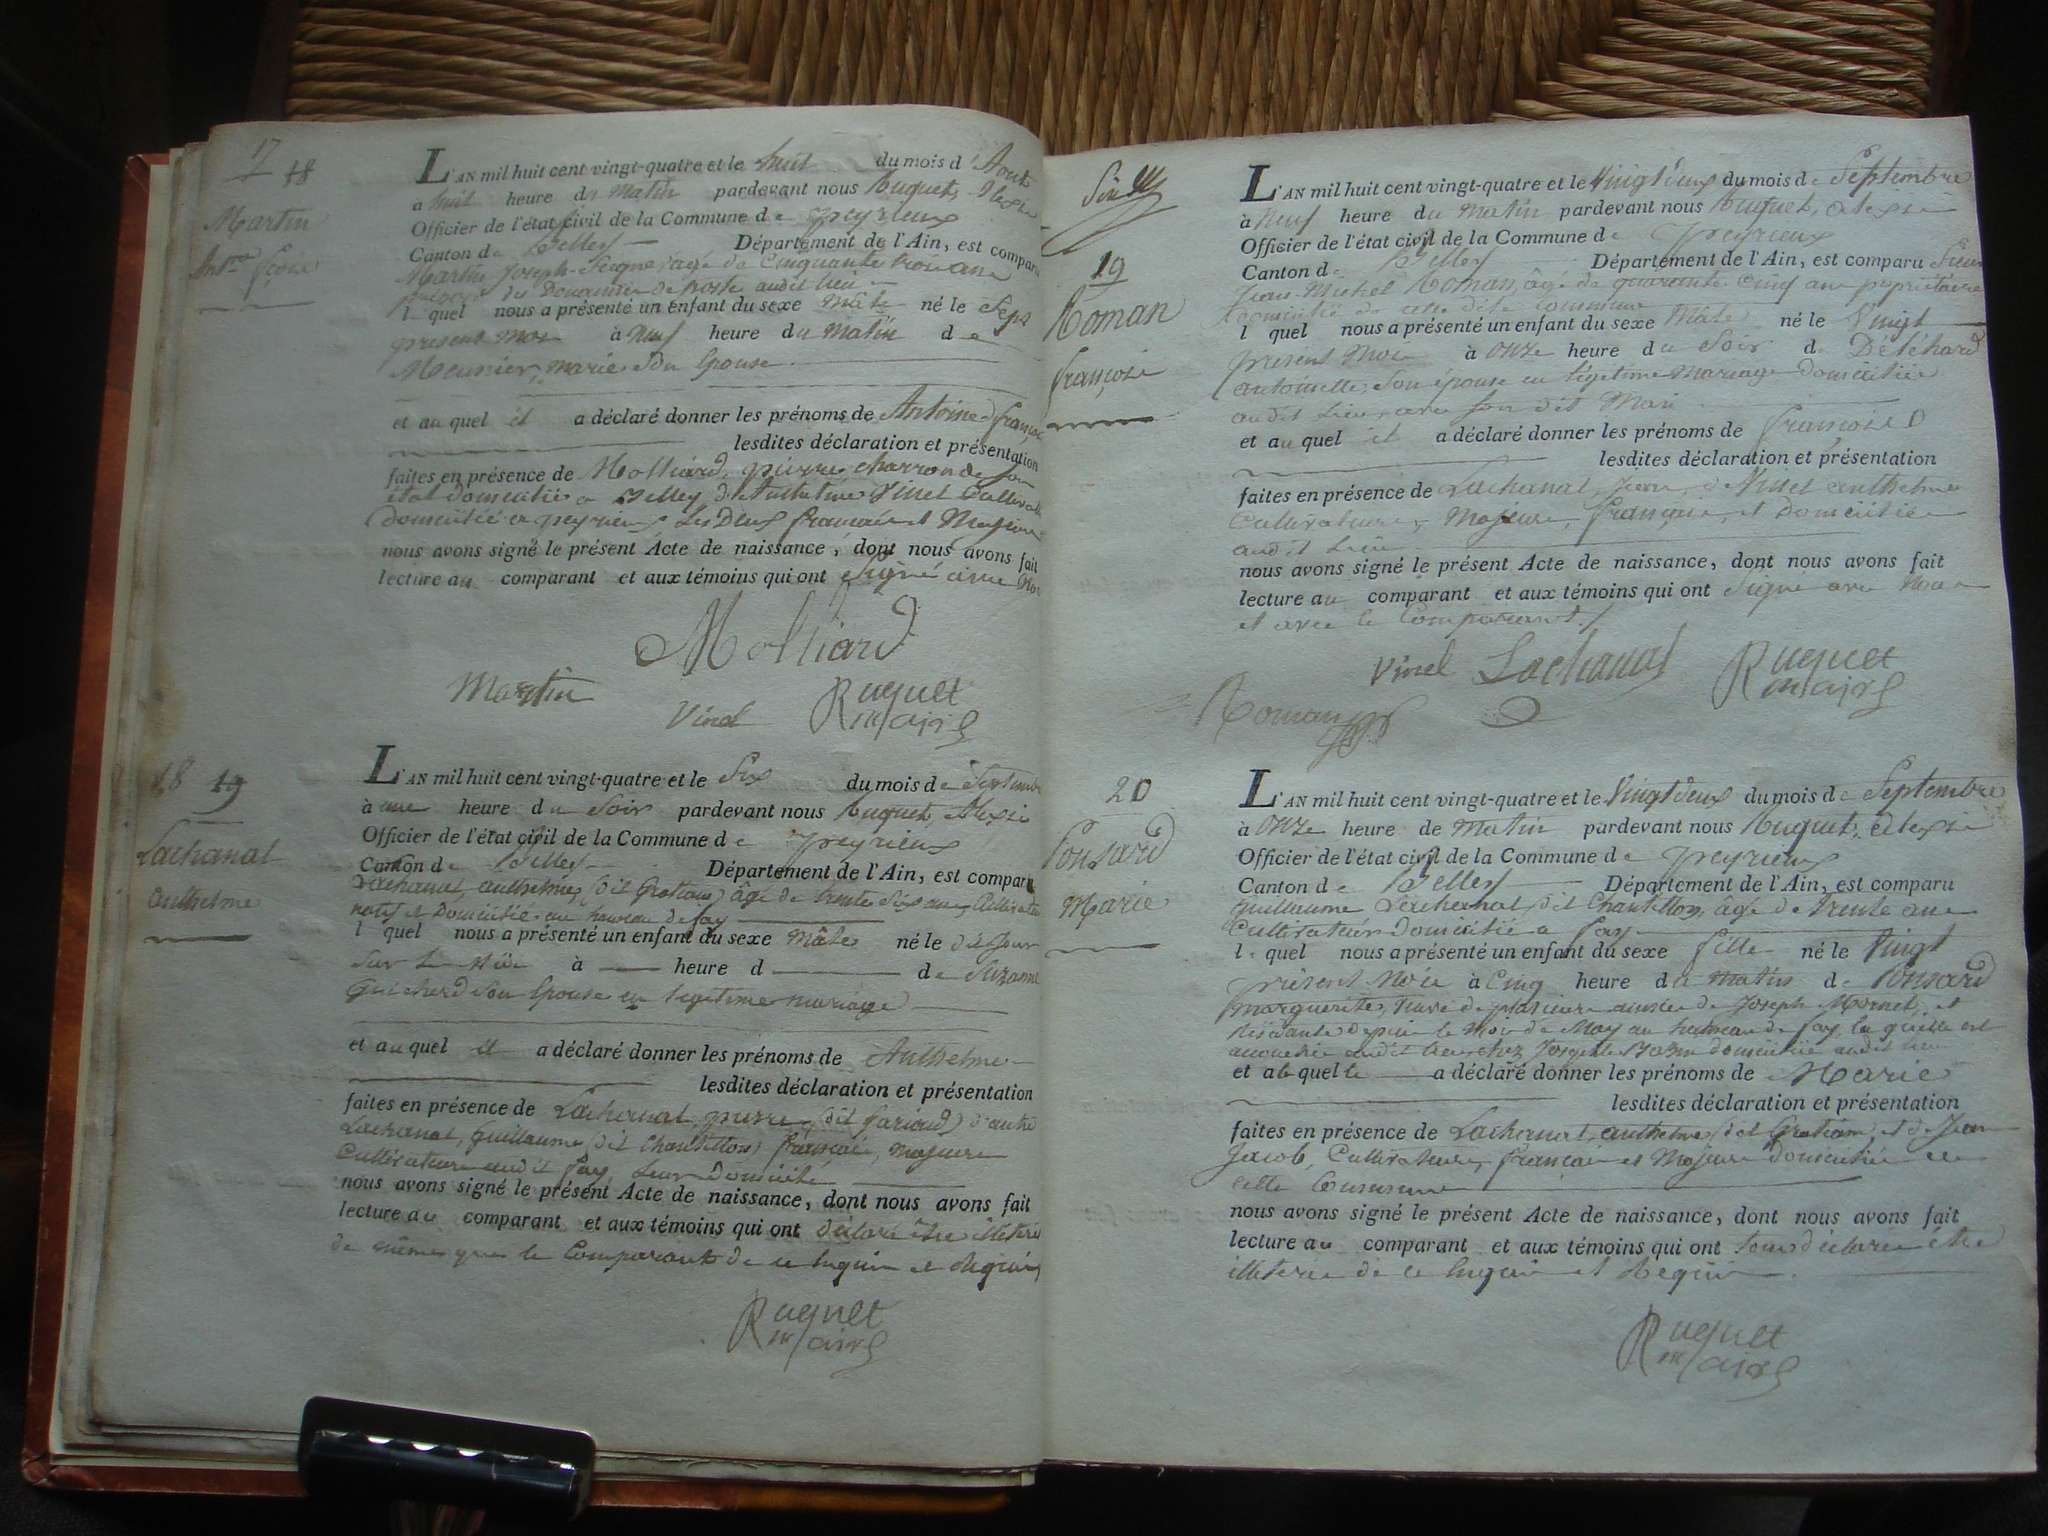 17
18
Martin
Ant.ne Fçois
L'AN mil huit cent vingt-quatre et le huit du mois d'Aout
a huit heure du Matin pardevant nous Ruquet, Alexis
Officier de l'état civil de la Commune de peyrieux
Canton de Belley Département de l'Ain, est comparu
Martin Joseph agé de Cinquante trois ans
des Douannes de poste audit lieu
l quel nous a présenté un enfant du sexe Mâle né le Sept
present mois à neuf heure du Matin de
Meunier, marie son épouse
et auquel il a déclaré donner les prénoms de Antoine françois
lesdites déclaration et présentation
faites en présence de Molliard, pierre charron de son
état domicilié a Belley, & Anthelme Vinel Cultivateur
domicilié a peyrieux Les Deux français et Majeurs
nous avons signé le présent Acte de naissance, dont nous avons fait
lecture au comparant et aux témoins qui ont Signé avec Nous
Molliard
Martin
Vinel
Ruquet
maire
18 19
Lachanal
anthelme
L'AN mil huit cent vingt-quatre et le Six du mois de Septembre
à une heure du Soir pardevant nous Ruquet, Alexis
Officier de l'état civil de la Commune de peyrieux
Canton de Belley Département de l'Ain, est comparu
Lachanal, anthelme, (dit Gratian) âgé de trente six ans, Cultivateur
natif et Domicilié au hameau de fay
l quel nous a présenté un enfant du sexe Mâle né le dit Jour
Sur Le Midi à heure d de Suzanne
Guicherd Son épouse en legitime mariage
et auquel il a déclaré donner les prénoms de Anthelme
lesdites déclaration et présentation
faites en présence de Lachanal, pierre (dit ) & autre
Lachanal, Guillaume (dit Chantillon) français, majeurs
Cultivateurs audit fay, Leur domicile
nous avons signé le présent Acte de naissance, dont nous avons fait
lecture au comparant et aux témoins qui ont déclaré être illeterés
de même que le Comparant de ce Enquis et Requis
Ruquet
maire
19
Roman
françois
L'AN mil huit cent vingt-quatre et le Vingt deux du mois de Septembre
à Neuf heure du Matin pardevant nous Ruquet, alexis
Officier de l'état civil de la Commune de peyrieux
Canton de Belley Département de l'Ain, est comparu Sieur
Michel Roman, âgé de quarante cinq ans propriétaire
domicilié de cette dite Commune
l quel nous a présenté un enfant du sexe Mâle né le Vingt
present Mois à onze heure du Soir de
antoinette, Son épouse en légitime Mariage domiciliée
audit Lieu, avec Son dit Mari
et auquel il a déclaré donner les prénoms de françois
lesdites déclaration et présentation
faites en présence de Lachanal, Jean & Vinel anthelme
Cultivateurs, Majeurs, français et Domiciliés
audit Lieu
nous avons signé le présent Acte de naissance, dont nous avons fait
lecture au comparant et aux témoins qui ont Signé avec Nous
et avec le Comparant
Vinel Lachanal Ruquet
maire
Roman
20
Ponsard
Marie
L'AN mil huit cent vingt-quatre et le Vingt deux du mois de Septembre
à onze heure de Matin pardevant nous Ruquet, alexis
Officier de l'état civil de la Commune de peyrieux
Canton de Belley Département de l'Ain, est comparu
Guillaume Lachanal, (dit Chantillon), âgé de trente ans
Cultivateur domicilié a fay
le quel nous a présenté un enfant du sexe fille né le Vingt
présent Mois à Cinq heure du Matin de Ponsard
marguerite, Veuve de plusieurs années de Joseph Mornet, et
Résidante depuis le Mois de May au hameau de fay, la quelle est
accouchée audit lieu chez domicilié audit lieu
et a la quelle a déclaré donner les prénoms de Marie
lesdites déclaration et présentation
faites en présence de Lachanal, anthelme (dit Gratian) et de Jean
Jacob, Cultivateurs, français et Majeurs domiciliés
cette Commune
nous avons signé le présent Acte de naissance, dont nous avons fait
lecture au comparant et aux témoins qui ont tous déclaré être
illeterés de ce Enquis et Requis
Ruquet
maire